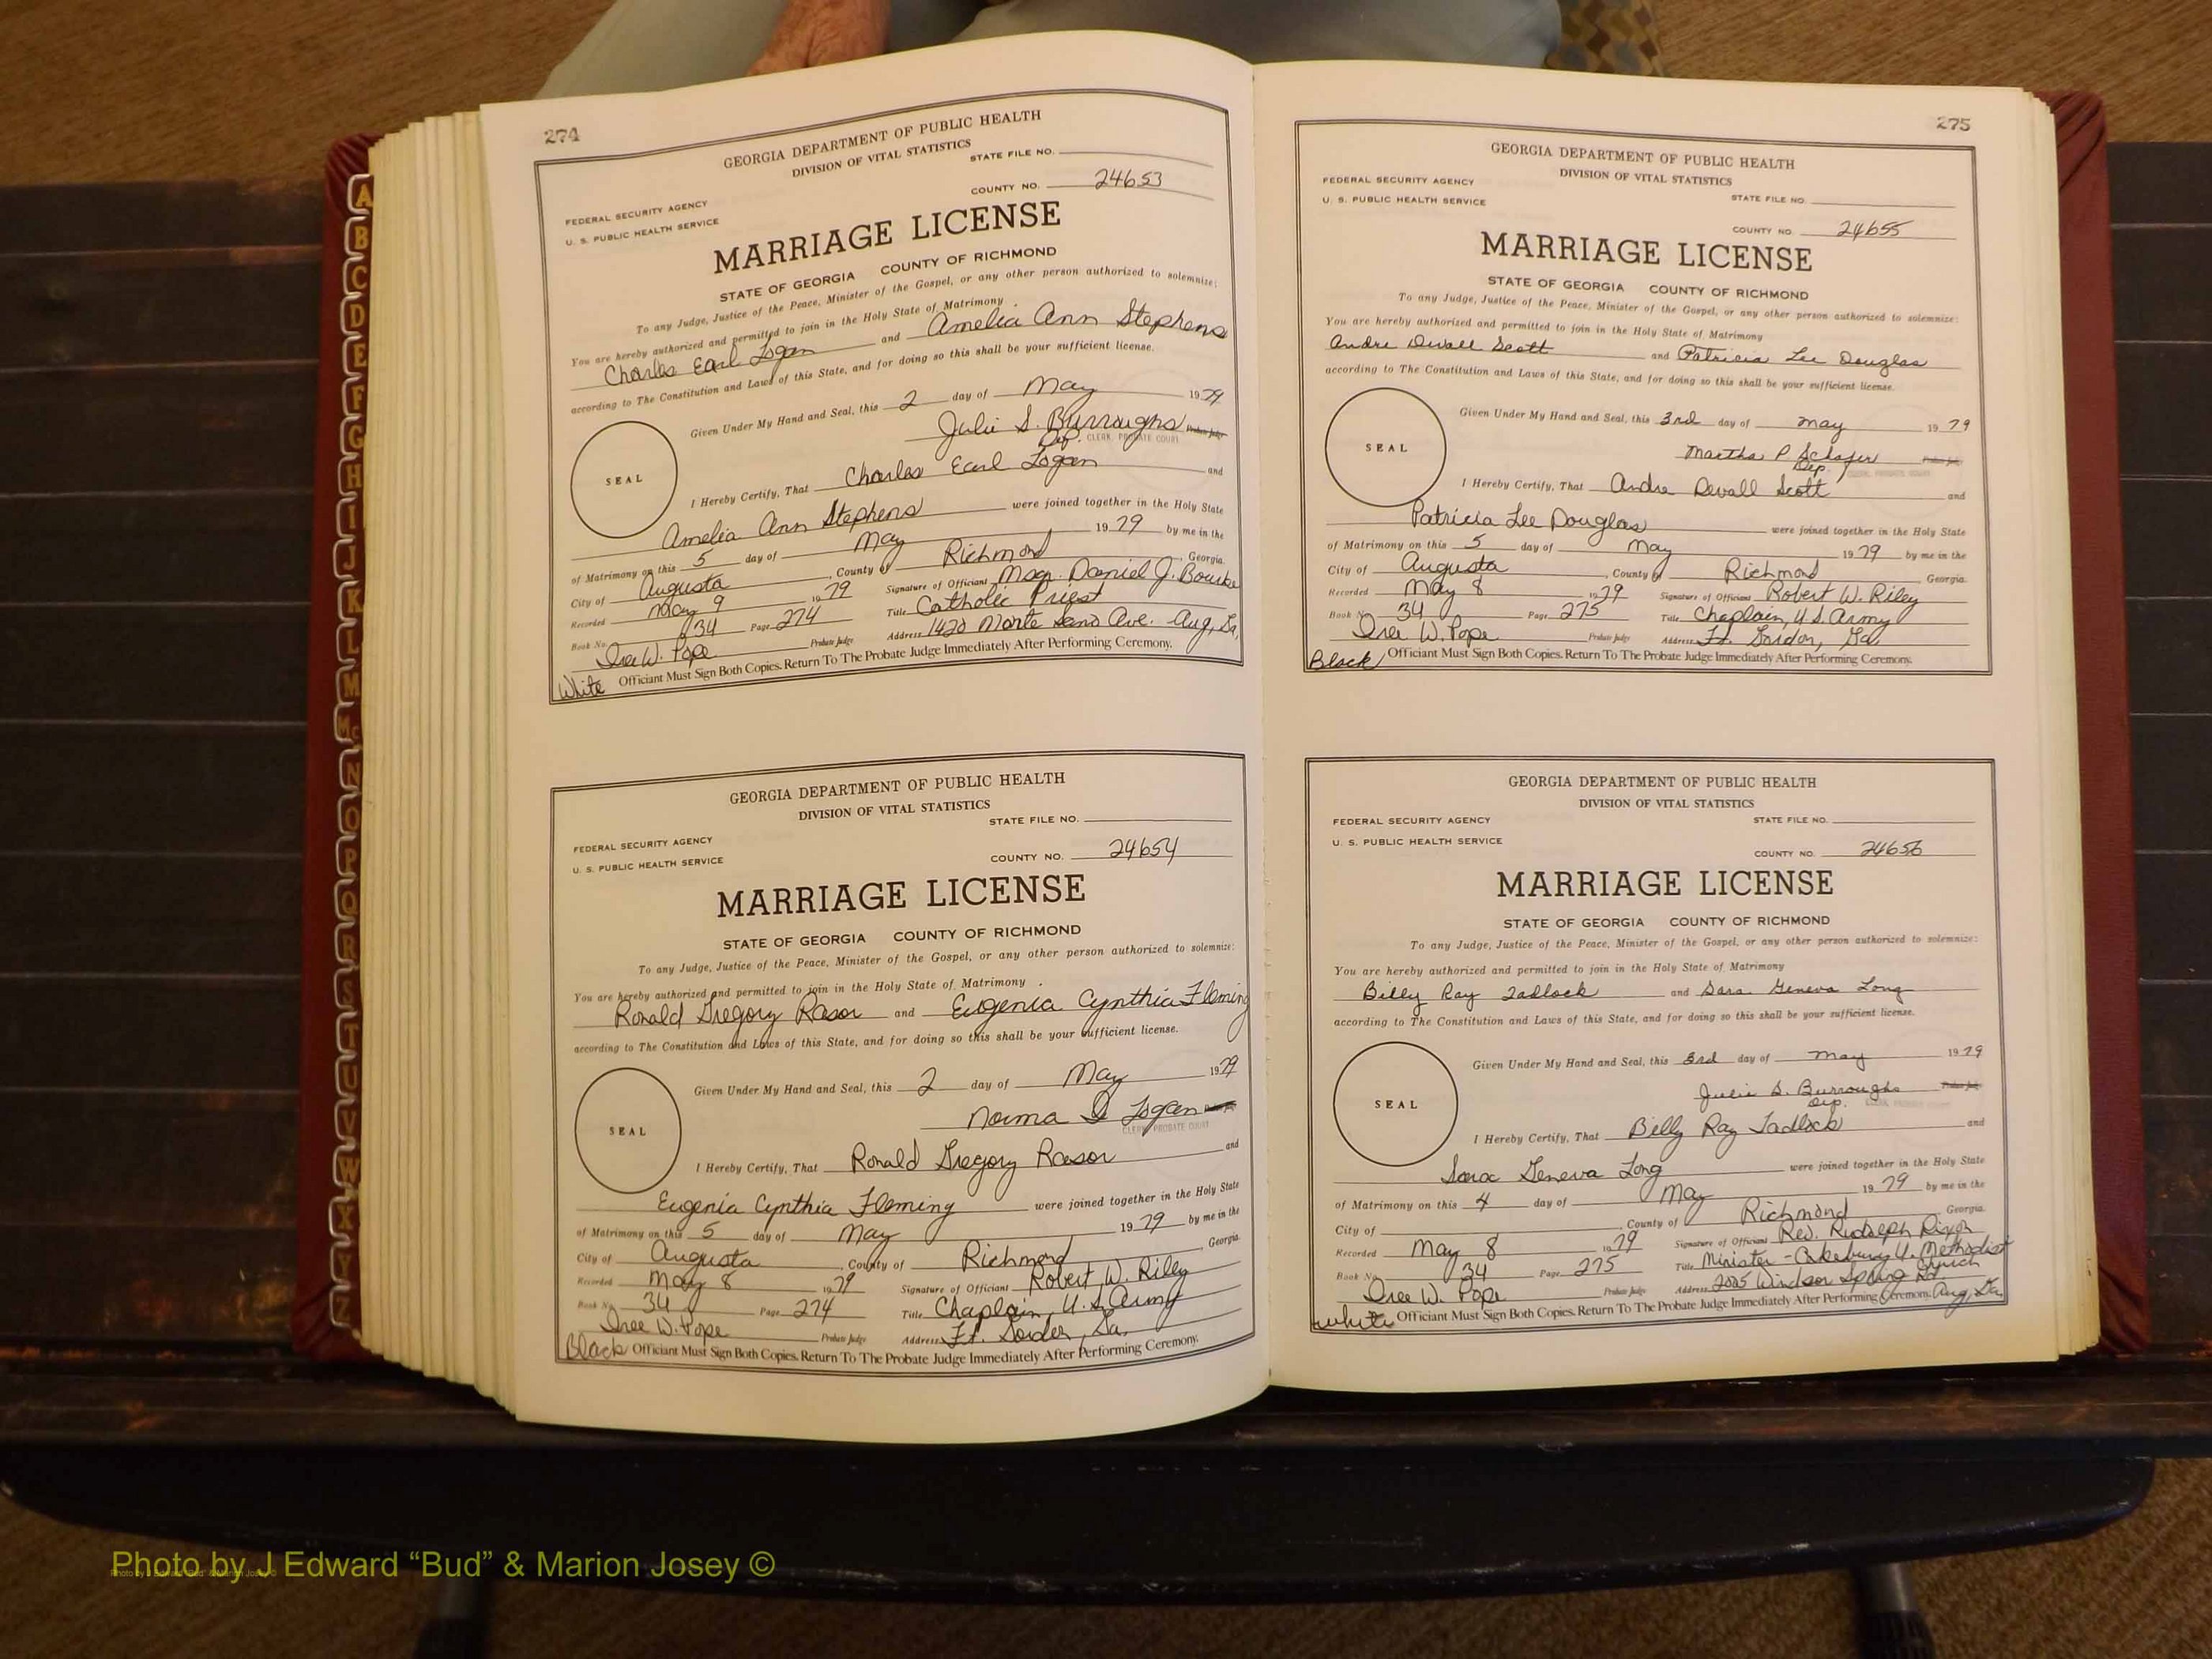 A
B
C
D
E
F
G
H
I
J
K
L
M
Mc
N
O
P
Q
R
S
T
U
V
W
X
Y
Z
274
GEORGIA DEPARTMENT OF PUBLIC HEALTH
DIVISION OF VITAL STATISTICS
STATE FILE NO.
COUNTY NO. 24653
FEDERAL SECURITY AGENCY
U. S. PUBLIC HEALTH SERVICE
MARRIAGE LICENSE
STATE OF GEORGIA COUNTY OF RICHMOND
To any Judge, Justice of the Peace, Minister of the Gospel, or any other person authorized to solemnize:
You are hereby authorized and permitted to join in the Holy State of Matrimony
Charles Earl Logan and Amelia Ann Stephens
according to The Constitution and Laws of this State, and for doing so this shall be your sufficient license.
Given Under My Hand and Seal, this 2 day of May 1979
Julie S. Burroughs Probate Judge
Dep. CLERK, PROBATE COURT
SEAL
I Hereby Certify, That Charles Earl Logan and
Amelia Ann Stephens were joined together in the Holy State
of Matrimony on this 5 day of May 1979 by me in the
City of Augusta, County of Richmond, Georgia.
Recorded May 9 1979 Signature of Officiant Msgr. Daniel J. Bourke
Book No. 34 Page 274 Title Catholic Priest
Iree W. Pope Probate Judge Address 1420 Monte Sano Ave. Aug, Ga,
White Officiant Must Sign Both Copies. Return To The Probate Judge Immediately After Performing Ceremony.
GEORGIA DEPARTMENT OF PUBLIC HEALTH
DIVISION OF VITAL STATISTICS
STATE FILE NO.
FEDERAL SECURITY AGENCY
U. S. PUBLIC HEALTH SERVICE
COUNTY NO. 24654
MARRIAGE LICENSE
STATE OF GEORGIA COUNTY OF RICHMOND
To any Judge, Justice of the Peace, Minister of the Gospel, or any other person authorized to solemnize:
You are hereby authorized and permitted to join in the Holy State of Matrimony
Ronald Gregory Rasor and Eugenia Cynthia Fleming
according to The Constitution and Laws of this State, and for doing so this shall be your sufficient license.
Given Under My Hand and Seal, this 2 day of May 1979
Norma Logan
CLERK, PROBATE COURT
SEAL
I Hereby Certify, That Ronald Gregory Rasor and
Eugenia Cynthia Fleming were joined together in the Holy State
of Matrimony on this 5 day of May 1979 by me in the
City of Augusta, County of Richmond, Georgia.
Recorded May 8 1979 Signature of Officiant Robert W. Riley
Book No. 34 Page 274 Title Chaplain, U.S. Army
Iree W. Pope Probate Judge Address Ft. Gordon, Ga.
Black Officiant Must Sign Both Copies. Return To The Probate Judge Immediately After Performing Ceremony.
275
GEORGIA DEPARTMENT OF PUBLIC HEALTH
DIVISION OF VITAL STATISTICS
FEDERAL SECURITY AGENCY
U. S. PUBLIC HEALTH SERVICE
STATE FILE NO.
COUNTY NO. 24655
MARRIAGE LICENSE
STATE OF GEORGIA COUNTY OF RICHMOND
To any Judge, Justice of the Peace, Minister of the Gospel, or any other person authorized to solemnize:
You are hereby authorized and permitted to join in the Holy State of Matrimony
Andre Devall Scott and Patricia Lee Douglas
according to The Constitution and Laws of this State, and for doing so this shall be your sufficient license.
Given Under My Hand and Seal, this 3rd day of May 1979
Martha P. Schafer Probate Judge
Dep. CLERK, PROBATE COURT
SEAL
I Hereby Certify, That Andre Devall Scott and
Patricia Lee Douglas were joined together in the Holy State
of Matrimony on this 5 day of May 1979 by me in the
City of Augusta, County of Richmond, Georgia.
Recorded May 8 1979 Signature of Officiant Robert W. Riley
Book No. 34 Page 275 Title Chaplain, U.S. Army
Iree W. Pope Probate Judge Address Ft. Gordon, Ga
Black Officiant Must Sign Both Copies. Return To The Probate Judge Immediately After Performing Ceremony.
GEORGIA DEPARTMENT OF PUBLIC HEALTH
DIVISION OF VITAL STATISTICS
FEDERAL SECURITY AGENCY
STATE FILE NO.
U. S. PUBLIC HEALTH SERVICE
COUNTY NO. 24656
MARRIAGE LICENSE
STATE OF GEORGIA COUNTY OF RICHMOND
To any Judge, Justice of the Peace, Minister of the Gospel, or any other person authorized to solemnize:
You are hereby authorized and permitted to join in the Holy State of Matrimony
Billy Ray Tadlock and Sara Geneva Long
according to The Constitution and Laws of this State, and for doing so this shall be your sufficient license.
Given Under My Hand and Seal, this 3rd day of May 1979
Julie S. Burroughs Probate Judge
Dep. CLERK, PROBATE COURT
SEAL
I Hereby Certify, That Billy Ray Tadlock and
Sara Geneva Long were joined together in the Holy State
of Matrimony on this 4 day of May 1979 by me in the
City of, County of Richmond Georgia.
Recorded May 8 1979 Signature of Officiant Rev. Rudolph Dixon
Book No. 34 Page 275 Title Minister - Asbury U. Methodist Church
Iree W. Pope Probate Judge Address 2005 Windsor Spring Rd. Aug, Ga.
White Officiant Must Sign Both Copies. Return To The Probate Judge Immediately After Performing Ceremony.
Photo by J Edward “Bud” & Marion Josey ©
Photo by J Edward "Bud" & Marion Josey ©